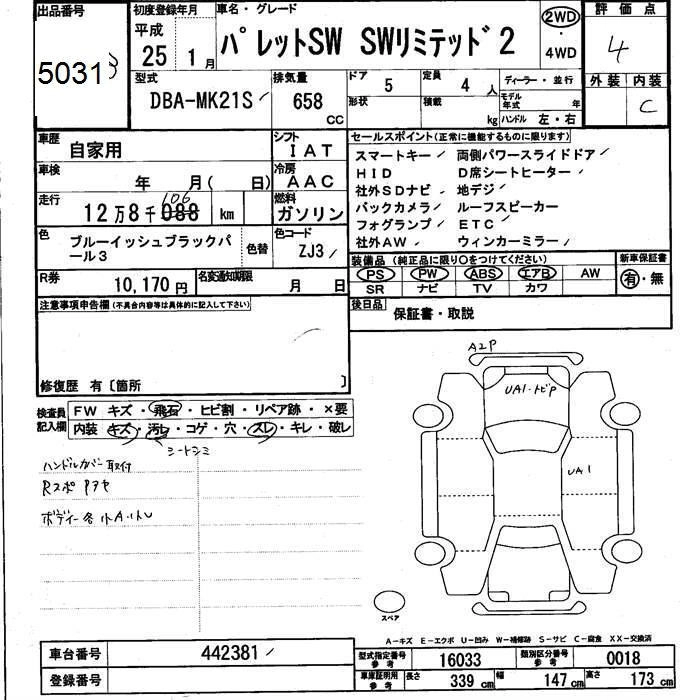 出品番号
50313
初度登録年月
平成
25 1月
車名・グレード
パレットSW SWリミテッド2
2WD
・
4WD
評価点
4
型式
DBA-MK21S
排気量
658
CC
ドア
5
定員
4 人
形状
積載
kg
ディーラー・並行
モデル年式 年
ハンドル 左・右
外装 内装
C
車歴
自家用
シフト
IAT
車検
年 月( 日)
冷房
AAC
走行
12万8千088 km
106
燃料
ガソリン
色
ブルーイッシュブラックパール3
色替
色コード
ZJ3
R券
10,170円
名変通知期限
月 日
セールスポイント(正常に機能するものに限ります)
スマートキー 両側パワースライドドア
HID D席シートヒーター
社外SDナビ 地デジ
バックカメラ ルーフスピーカー
フォグランプ ETC
社外AW ウィンカーミラー
装備品 (純正品に限り○をつけてください)
PS PW ABS エアB AW
SR ナビ TV カワ
新車保証書
有・無
後日品
保証書・取説
注意事項申告欄(不具合内容等は具体的に記入して下さい)
修復歴 有〔箇所 〕
検査員記入欄
FW キズ・飛石・ヒビ割・リペア跡・×要
内装 キズ・汚レ・コゲ・穴・スレ・キレ・破レ
シートシミ
ハンドルカバー取付
Rスポ Pアヤ
ボディー各小A・小U
A2P
UA1・トビP
UA1
スペア
A-キズ E-エクボ U-凹み W-補修跡 S-サビ C-腐食 XX-交換済
車台番号
442381
登録番号
型式指定番号
参考
16033
類別区分番号
参考
0018
車庫証明用
参考
長さ 339 cm 幅 147 cm 高さ 173 cm